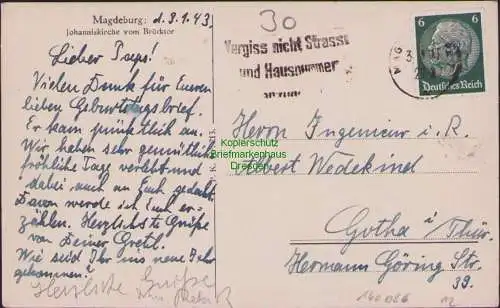 Magdeburg: d. 3.1.43.
Johanniskirche vom Brücktor
Lieber Paps!
Vielen Dank für Euren
lieben Geburtstagsbrief.
Er kam pünktlich an.
Wir haben sehr gemütlich
fröhliche Tage verlebt und
dabei auch an Euch gedacht.
Davon werde ich Euch er-
zählen. Herzlichste Grüße
von Deiner Gretl.
Wie seid Ihr ins neue Jahr
gekommen?
Herzliche Grüße
30
Vergiss nicht Strasse
und Hausnummer
6 6
Deutsches Reich
Kopierschutz
Briefmarkenhaus
Dresden
Herrn Ingenieur i. R.
Albert Wedekind
Gotha i. Thür.
Hermann Göring Str.
39.